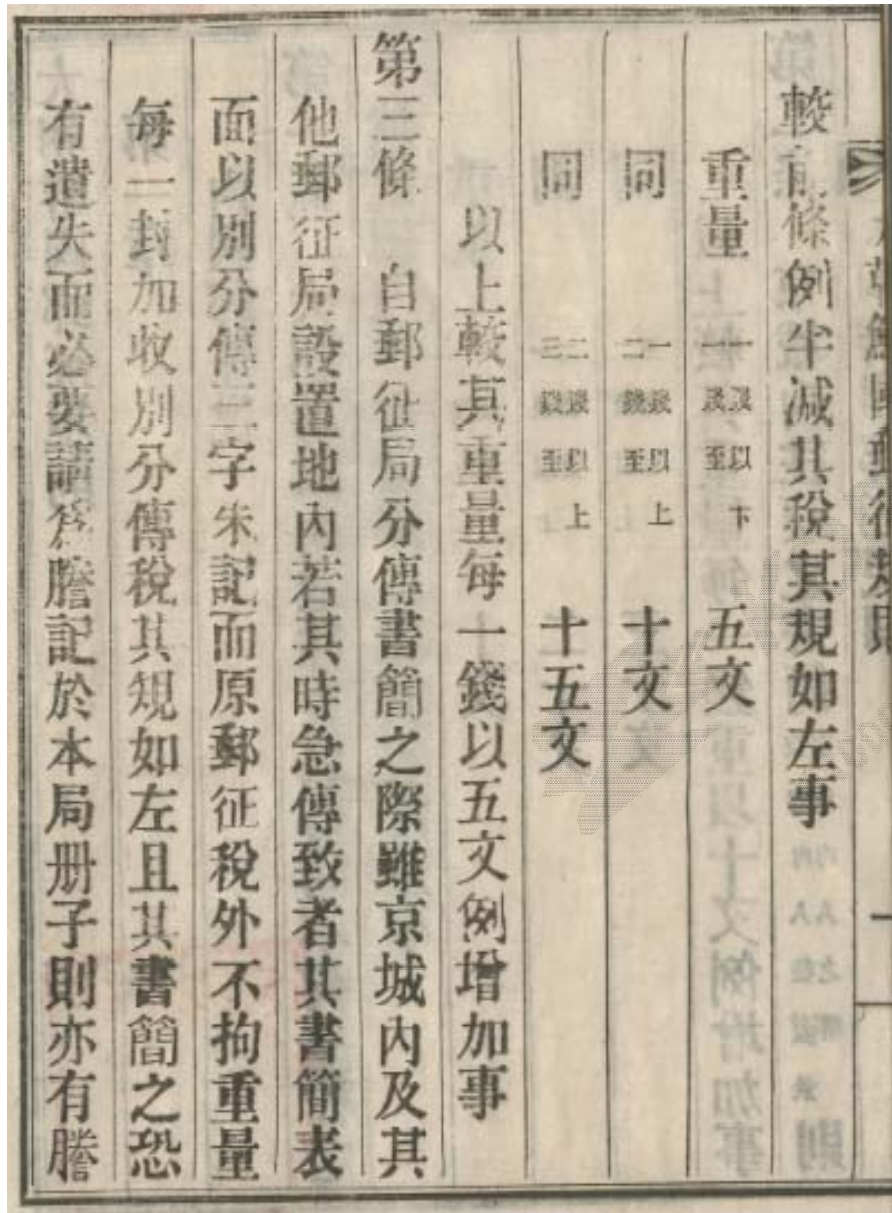 大朝鮮國郵征規則 一
較前條例半減其稅其規如左事
重量 一戔以下 一戔至 五文
同 一戔以上 二錢至 十文
同 二戔以上 三錢至 十五文
以上較其重量每一錢以五文例增加事
第三條 自郵征局分傳書簡之際雖京城內及其
他郵征局設置地內若其時急傳致者其書簡表
面以別分傳三字朱記而原郵征稅外不拘重量
每一封加收別分傳稅其規如左且其書簡之恐
有遺失而必要請爲謄記於本局册子則亦有謄